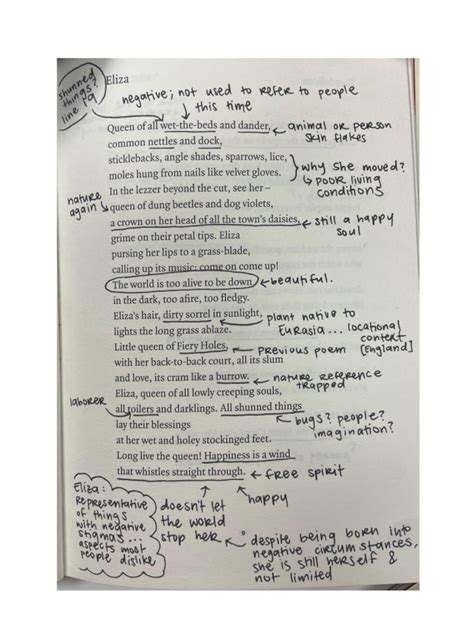 shunned
things?
line 19
Eliza
negative; not used to refer to people
this time
Queen of all wet-the-beds and dander,
animal or person
skin flakes
common nettles and dock,
sticklebacks, angle shades, sparrows, lice,
moles hung from nails like velvet gloves.
why she moved?
poor living
conditions
nature
again
In the lezzer beyond the cut, see her –
queen of dung beetles and dog violets,
a crown on her head of all the town's daisies,
still a happy
soul
grime on their petal tips. Eliza
pursing her lips to a grass-blade,
calling up its music: come on come up!
The world is too alive to be down
beautiful.
in the dark, too afire, too fledgy.
Eliza's hair, dirty sorrel in sunlight,
plant native to
Eurasia... locational
context
[England]
lights the long grass ablaze.
Little queen of Fiery Holes,
previous poem
with her back-to-back court, all its slum
and love, its cram like a burrow.
nature reference
trapped
Eliza, queen of all lowly creeping souls,
laborer
all toilers and darklings. All shunned things
bugs? people?
imagination?
lay their blessings
at her wet and holey stockinged feet.
Long live the queen! Happiness is a wind
that whistles straight through.
free spirit
happy
Eliza:
Representative
of things
with negative
stigmas...
aspects most
people dislike
doesn't let
the world
stop her
despite being born into
negative circumstances,
she is still herself &
not limited